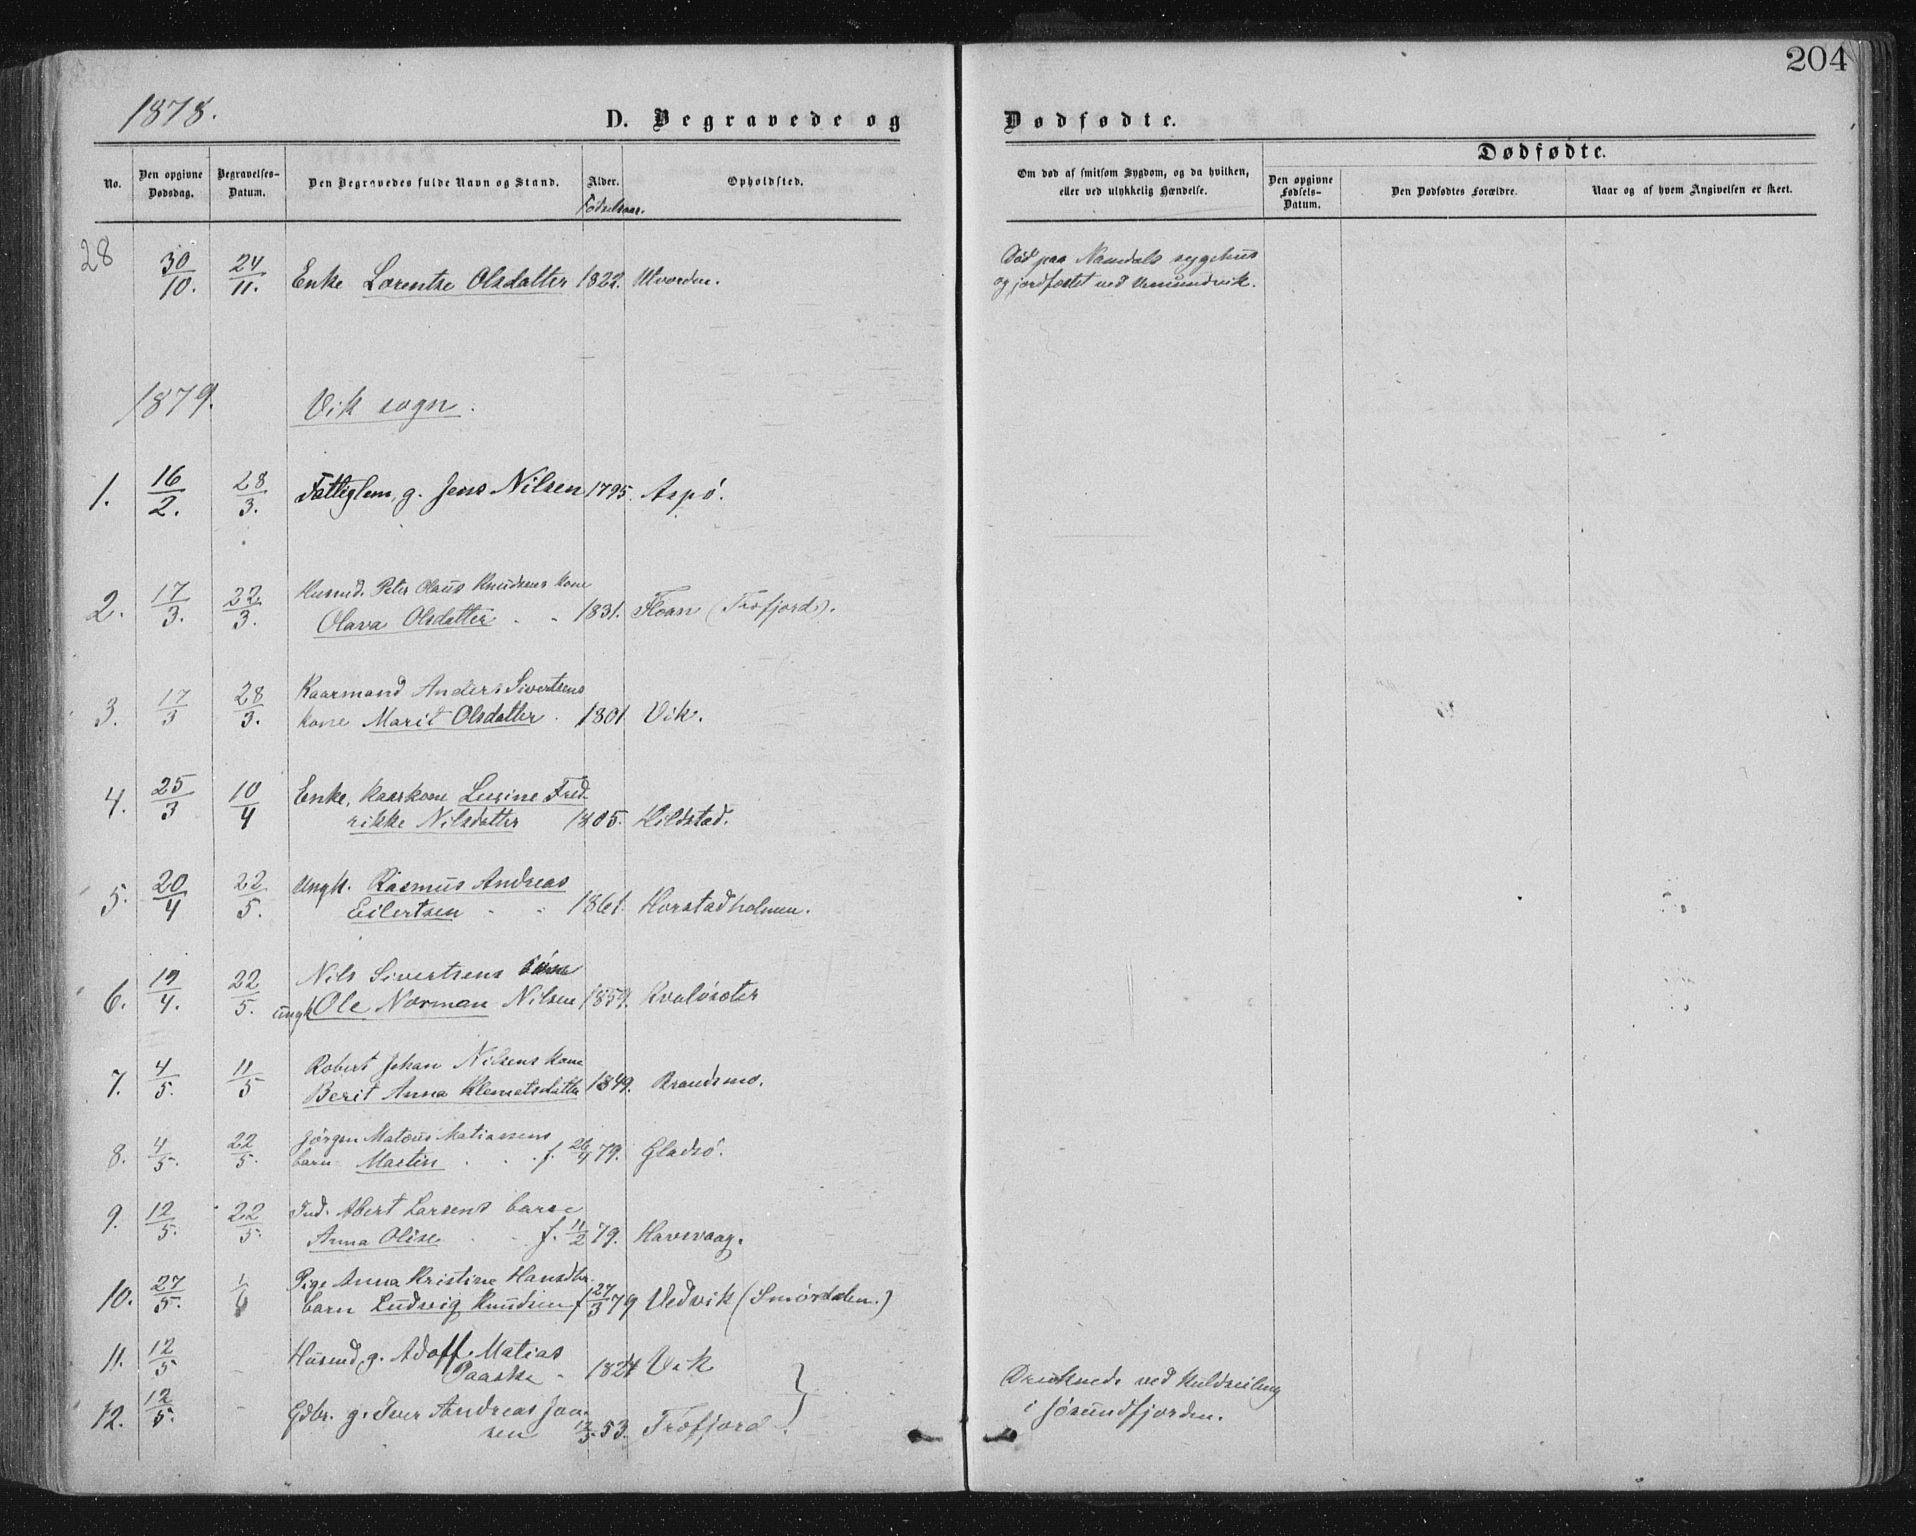 204
1878.
D. Begravede og Dødfødte.
No. Den opgivne Dødsdag. Begravelses-Datum. Den Begravedes fulde Navn og Stand. Alder. Fødselsaar. Opholdsted. Om død af smitsom Sygdom, og da hvilken, eller ved ulykkelig Hændelse.
Dødfødte.
Den opgivne Fødsels-Datum. Den Dødfødtes Forældre. Naar og af hvem Angivelsen er skeet.
28 30/10. 24/11. Enke Lorentse Olsdatter 1822. Utvorden. Død paa Namdals sygehus
og jordfæstet ved Vemundvik.
1879. Vik sogn.
1. 16/2. 28/3. Fattiglem, g. Jens Nilsen 1795. Aspø.
2. 17/3. 22/3. Husmd. Peter Olaus Knudsens kone
Olava Olsdatter - - 1831. Floan (Trofjord).
3. 17/3 28/3. Kaarmand Anders Sivertsens
kone Marit Olsdatter. 1801 Vik.
4. 25/3 10/4 Enke, kaarkone Lusine Fred-
rikke Nilsdatter 1805. Kildstad.
5. 20/4 22/5. Ungk. Rasmus Andreas
Eilertsen - - 1861. Horstadholmen.
6. 19/4. 22/5. Nils Sivertsens
ungk Ole Norman Nilsen 1859. Kvaløsæter
7. 4/5. 11/5 Robert Johan Nilsens kone
Berit Anna Klemetsdatter 1849. Brandsmo.
8. 4/5. 22/5. Jørgen Mateus Matiassens
barn Martin . . . f. 26/4 79. Gladsø.
9. 12/5. 22/5. Ind. Albert Larsens barn
Anna Olise . . f. 11/2 79. Havsvaag.
10. 27/5. 1/6 Pige Anna Kristine Hansdtr.
barn Ludvig Knudsen f 27/3 79 Vedvik (Smørdalen.)
11. 12/5 - Husmd g. Adolf Matias
Paaske - 1824 Vik Druknede ved Kuldseiling
12. 12/5. - Gdbr. g. Iver Andreas Joa- i Jøsundfjorden.
sen 12/5 53. Trofjord